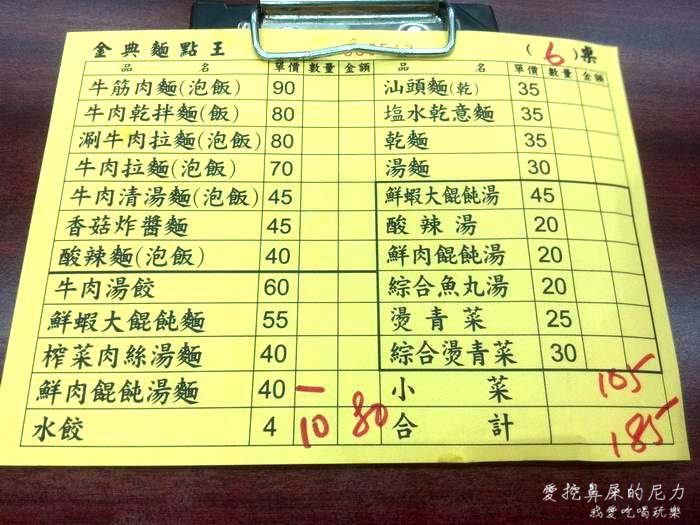 金典麵點王 (6)桌
品名 單價 數量 金額 品名 單價 數量 金額
牛筋肉麵(泡飯) 90 汕頭麵(乾) 35
牛肉乾拌麵(泡飯) 80 塩水乾意麵 35
涮牛肉拉麵(泡飯) 80 乾麵 35
牛肉拉麵(泡飯) 70 湯麵 30
牛肉清湯麵(泡飯) 45 鮮蝦大餛飩湯 45
香菇炸醬麵 45 酸辣湯 20
酸辣麵(泡飯) 40 鮮肉餛飩湯 20
牛肉湯餃 60 綜合魚丸湯 20
鮮蝦大餛飩麵 55 燙青菜 25
榨菜肉絲湯麵 40 綜合燙青菜 30
鮮肉餛飩湯麵 40 一 小菜 105
水餃 4 10 80 合計 185
愛挖鼻屎的尼力
我愛吃喝玩樂